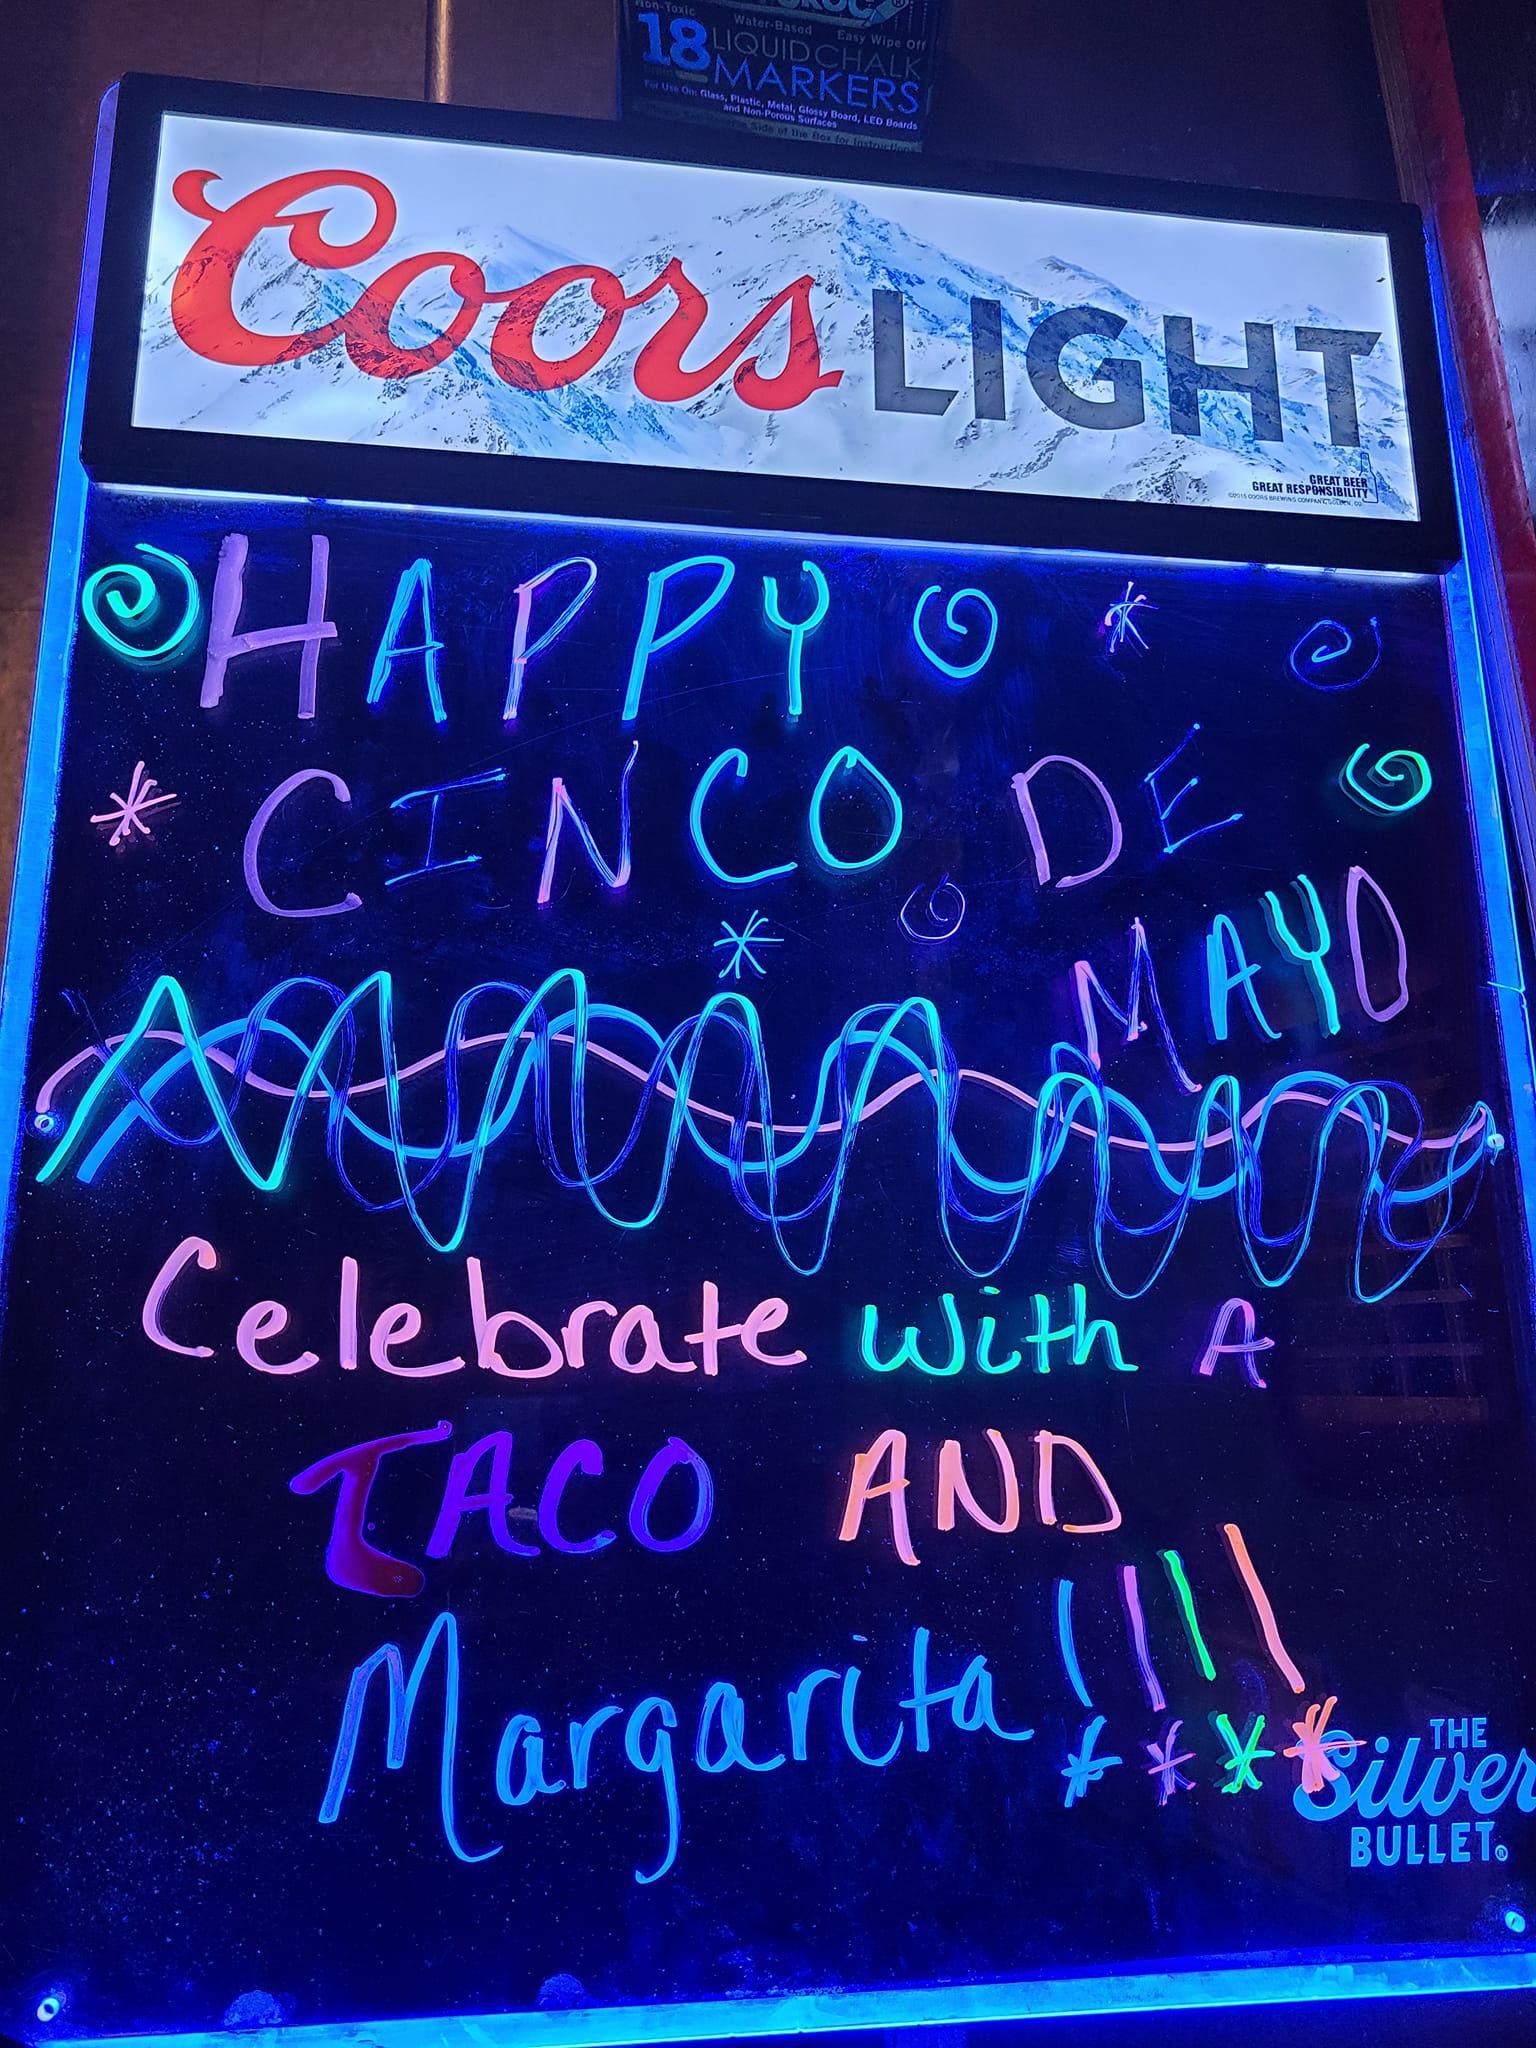 Non-Toxic Water-Based Easy Wipe Off
18 LIQUID CHALK
MARKERS
For Use On: Glass, Plastic, Metal, Glossy Board, LED Boards
and Non-Porous Surfaces
Side of the Box for Instructions
Coors LIGHT
GREAT BEER
GREAT RESPONSIBILITY
©2015 COORS BREWING COMPANY, GOLDEN, CO
HAPPY
CINCO DE
MAYO
Celebrate with A
TACO AND
Margarita!!!!
THE
Silver
BULLET®